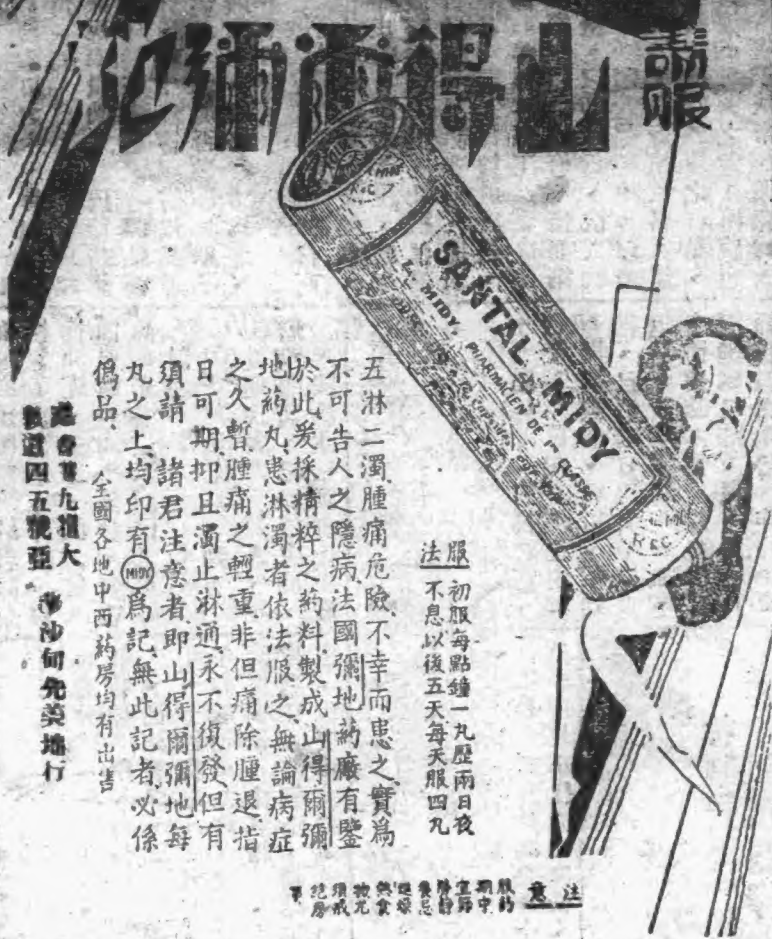 請服
山得爾彌地
SANTAL MIDY
L. MIDY, PHARMACIEN DE 1re CLASSE
服法
初服每點鐘一丸歷兩日夜
不息以後五天每天服四丸
五淋二濁腫痛危險、不幸而患之、實爲
不可告人之隱病、法國彌地葯廠有鑒
於此、爰採精粹之葯料、製成山得爾彌
地葯丸、患淋濁者依法服之、無論病症
之久暫、腫痛之輕重、非但痛除腫退、指
日可期、抑且濁止淋通、永不復發、但有
須請　諸君注意者、即山得爾彌地每
丸之上、均印有MIDY爲記、無此記者、必係
僞品、
全國各地中西葯房均有出售
注意
服葯
期中
宜靜
養忌
燥
熱食
物尤
須戒
絕房
事